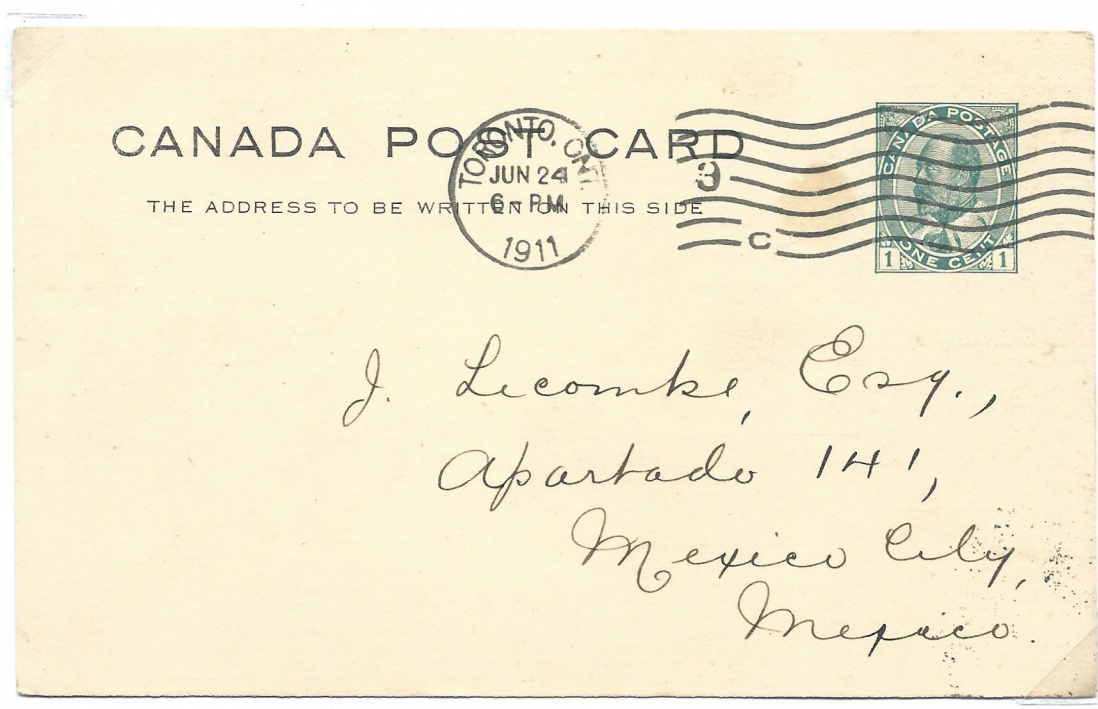 CANADA POST CARD
THE ADDRESS TO BE WRITTEN ON THIS SIDE
TORONTO, ONT.
JUN 24
6 - PM
1911
3
C
CANADA POSTAGE
ONE CENT
1 1
J. Lecomte, Esq.,
Apartado 141,
Mexico City,
Mexico.